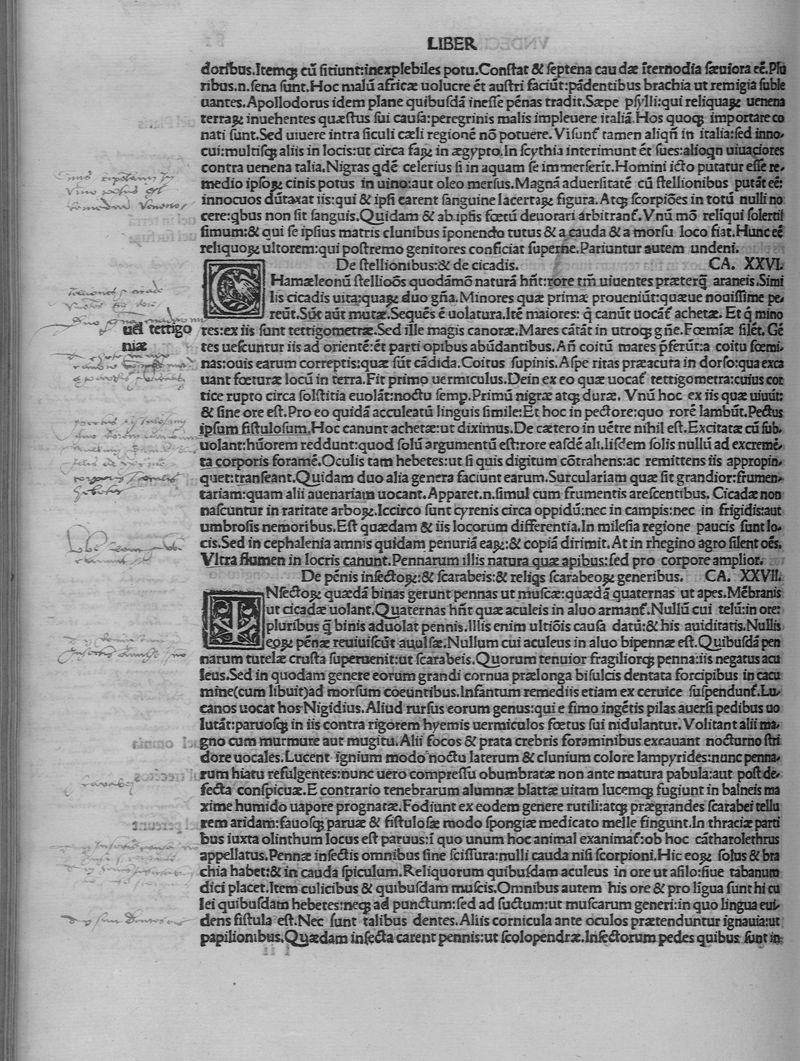 LIBER
doribus.Itemq; cū sitiunt:inexplebiles potu.Constat & septena caudæ īternodia sæuiora eē.Plu
ribus.n.sena sunt.Hoc malū africæ uolucre ēt austri faciūt:pādentibus brachia ut remigia suble
uantes.Apollodorus idem plane quibusdā inesse pēnas tradit.Sæpe psylli:qui reliquaꝝ uenena
terraꝝ inuehentes quæstus sui causa:peregrinis malis impleuere italiā.Hos quoq; importare co
nati sunt.Sed uiuere intra siculi cæli regionē nō potuere.Visunt᷑ tamen aliqñ in italia:sed inno-
cui:multisq; aliis in locis:ut circa faꝝ in ægypto.In scythia interimunt ēt sues:alioqn uiuaciores
contra uenena talia.Nigras qdē celerius si in aquam se immerserīt.Homini icto putatur esse re-
medio ipsoꝝ cinis potus in uino:aut oleo mersus.Magnā aduersitatē cū stellionibus putāt eē:
innocuos dūtaxat iis:qui & ipsi carent sanguine lacertaꝝ figura.Atq; scorpiōes in totū nulli no
cere:qbus non sit sanguis.Quidam & ab ipsis fœtū deuorari arbitrant᷑.Vnū mō relīqui solertis
simum:& qui se ipsius matris clunibus īponendo tutus & a cauda & a morsu loco fiat.Hunc eē
reliquoꝝ ultorem:qui postremo genitores conficiat superne.Pariuntur autem undeni.
De stellionibus:& de cicadis. CA. XXVI.
CHamæleonū stelliōs quodāmō naturā hñt:rore tm̄ uiuentes præterq̄ araneis.Simi
lis cicadis uita:quaꝝ duo gña.Minores quæ primæ proueniūt:quæue nouissime pe-
reūt.Sūt aūt mutæ.Sequēs ē uolatura.Itē maiores: q̄ canūt uocāt᷑ achetæ.Et q̄ mino
uel tettigo
niæ
res:ex iis sunt tettigometræ.Sed ille magis canoræ.Mares cātāt in utroq; gñe.Fœmīæ silēt.Gē
tes uescuntur iis ad orientē:ēt parti opibus abūdantibus.Añ coitū mares p̄ferūt:a coitu fœmi-
nas:ouis earum correptis:quæ sūt cādida.Coitus supinis.Aspe ritas præacuta in dorso:qua exca
uant fœturæ locū in terra.Fit primo uermiculus.Dein ex eo quæ uocat᷑ tettigometra:cuius cor
tice rupto circa solstitia euolāt:noctu semp.Primū nigræ atq; duræ. Vnū hoc ex iis quæ uiuūt:
& sine ore est.Pro eo quidā acculeatū linguis simile:Et hoc in pectore:quo rorē lambūt.Pectus
ipsum fistulosum.Hoc canunt achetæ:ut diximus.De cætero in uētre nihil est.Excitatæ cū sub-
uolant:hūorem reddunt:quod solū argumentū est:rore easdē ali.Iisdem solis nullū ad excremē-
ta corporis foramē.Oculis tam hebetes:ut si quis digitum cōtrahens:ac remittens iis appropin-
quet:transeant.Quidam duo alia genera faciunt earum.Surculariam quæ sit grandior:frumen-
tariam:quam alii auenariam uocant.Apparet.n.simul cum frumentis arescentibus. Cicadæ non
nascuntur in raritate arboꝝ.Iccirco sunt cyrenis circa oppidū:nec in campis:nec in frigidis:aut
umbrosis nemoribus.Est quædam & iis locorum differentia.In milesia regione paucis sunt lo-
cis.Sed in cephalenia amnis quidam penuriā eaꝝ:& copiā dirimit.At in rhegino agro silent oēs.
Vltra flumen in locris canunt.Pennarum illis natura quæ apibus:sed pro corpore amplior.
De pēnis insectoꝝ:& scarabeis:& reliqs scarabeoꝝ generibus. CA. XXVII.
INsectoꝝ quædā binas gerunt pennas ut muscæ:quædā quaternas ut apes.Mēbranis
ut cicadæ uolant.Quaternas hñt quæ aculeis in aluo armant᷑.Nullū cui telū:in ore:
pluribus q̄ binis aduolat pennis.Illis enim ultiōis causa datū:& his auiditatis.Nullis
eoꝝ pēnæ reuiuiscūt auulsæ.Nullum cui aculeus in aluo bipennæ est.Quibusdā pen
narum tutelæ crusta superuenit:ut scarabeis.Quorum tenuior fragiliorq; penna:iis negatus acu
leus.Sed in quodam genere eorum grandi cornua prælonga bisulcis dentata forcipibus in cacu
mine(cum libuit)ad morsum coeuntibus.Infantum remediis etiam ex ceruice suspendunt᷑.Lu-
canos uocat hos Nigidius.Aliud rursus eorum genus:qui e fimo ingētis pilas auersi pedibus uo
lutāt:paruosq; in iis contra rigorem hyemis uermiculos fœtus sui nidulantur.Volitant alii ma-
gno cum murmure aut mugitu.Alii focos & prata crebris foraminibus excauant nocturno stri
dore uocales.Lucent ignium modo noctu laterum & clunium colore lampyrides:nunc penna-
rum hiatu refulgentes:nunc uero compressu obumbratæ non ante matura pabula:aut post de-
secta conspicuæ.E contrario tenebrarum alumnæ blattæ uitam lucemq; fugiunt in balneis ma
xime humido uapore prognatæ.Fodiunt ex eodem genere rutili:atq; prægrandes scarabei tellu
rem aridam:fauosq; paruæ & fistulosæ modo spongiæ medicato melle fingunt.In thraciæ parti
bus iuxta olinthum locus est paruus:ī quo unum hoc animal exanimat᷑:ob hoc cātharolethrus
appellatus.Pennæ insectis omnibus sine scissura:nulli cauda nisi scorpioni.Hic eoꝝ solus & bra
chia habet:& in cauda spiculum.Reliquorum quibusdam aculeus in ore ut asilo:siue tabanum
dici placet.Item culicibus & quibusdam muscis.Omnibus autem his ore & pro ligua sunt hi cu
lei quibusdam hebetes:neq; ad punctum:sed ad suctum:ut muscarum generi:in quo lingua eui-
dens fistula est.Nec sunt talibus dentes.Aliis cornicula ante oculos prætenduntur ignauia:ut
papilionibus.Quædam insecta carent pennis:ut scolopendræ.Insectorum pedes quibus sunt in